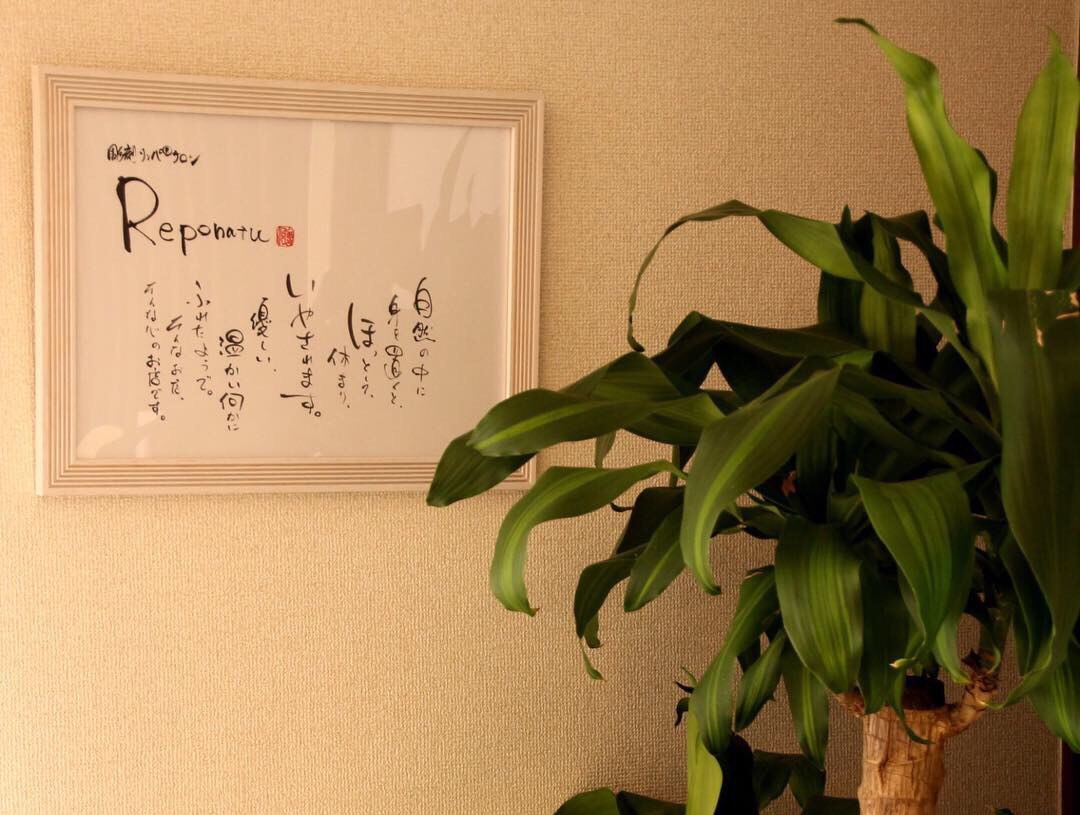 彫刻リンパ®サロン
Reponatu
自然の中に
身を置くと、
ほっとし、
休まり、
いやされます。
優しい、
温かい何かに
ふれたようで。
そんなお店、
そんな心のお店です。